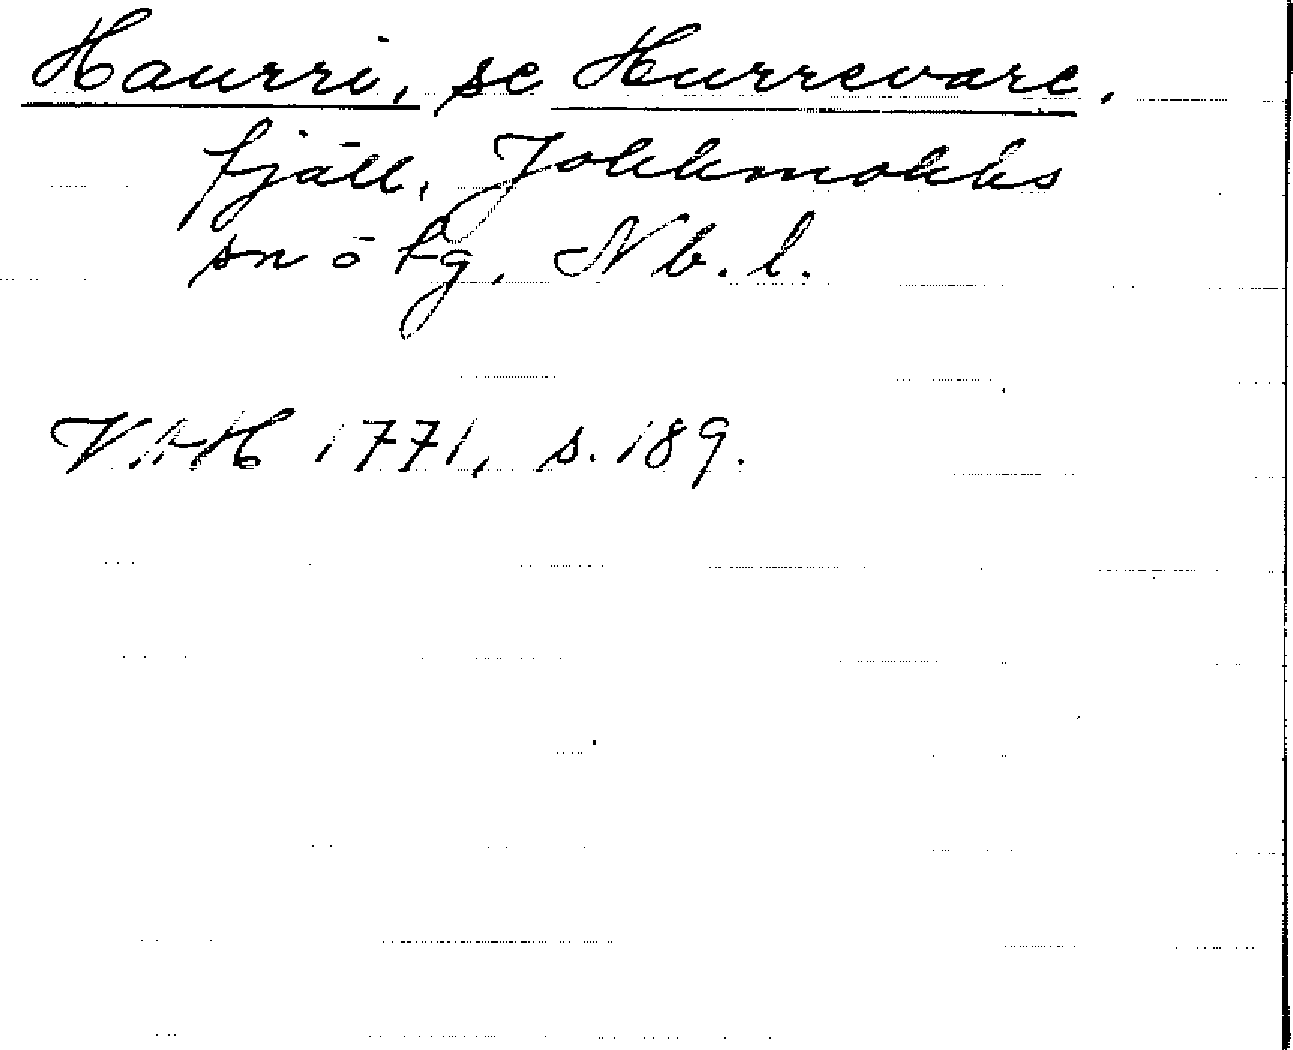 Haurri, se Hurrevare.
fjäll, Jokkmokks
sn ō tg, Nb. l.
VAH 1771, s. 189.